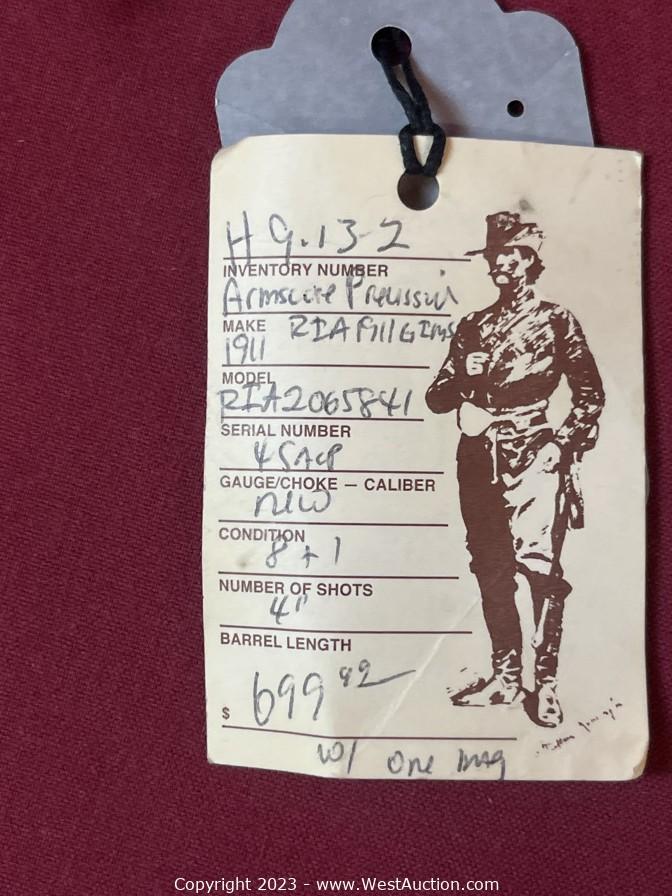 H 9.13-2
INVENTORY NUMBER
Armscore
MAKE RIA 1911 G.I.
1911
MODEL
RIA2065841
SERIAL NUMBER
45ACP
GAUGE/CHOKE — CALIBER
new
CONDITION
8 + 1
NUMBER OF SHOTS
4"
BARREL LENGTH
$ 699 99
w/ One mag
Copyright 2023 - www.WestAuction.com